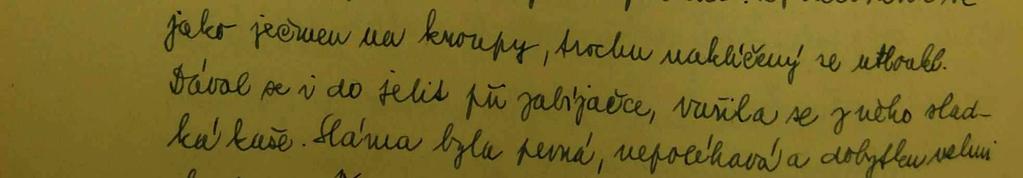 jako ječmen na kroupy, trochu naklíčený se utloukl.
Dával se i do jelit při zabíjačce, vařila se z něho slad-
ká kaše. Sláma byla pevná, nepoléhavá a dobytku velmi